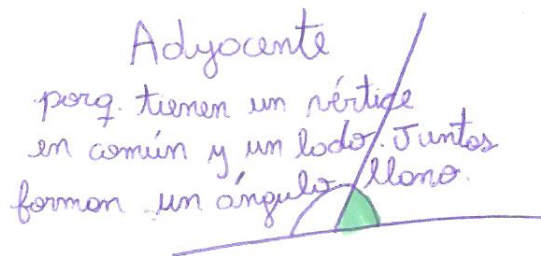 Adyacente
porq. tienen un vértice
en común y un lado. Juntos
forman un ángulo llano.